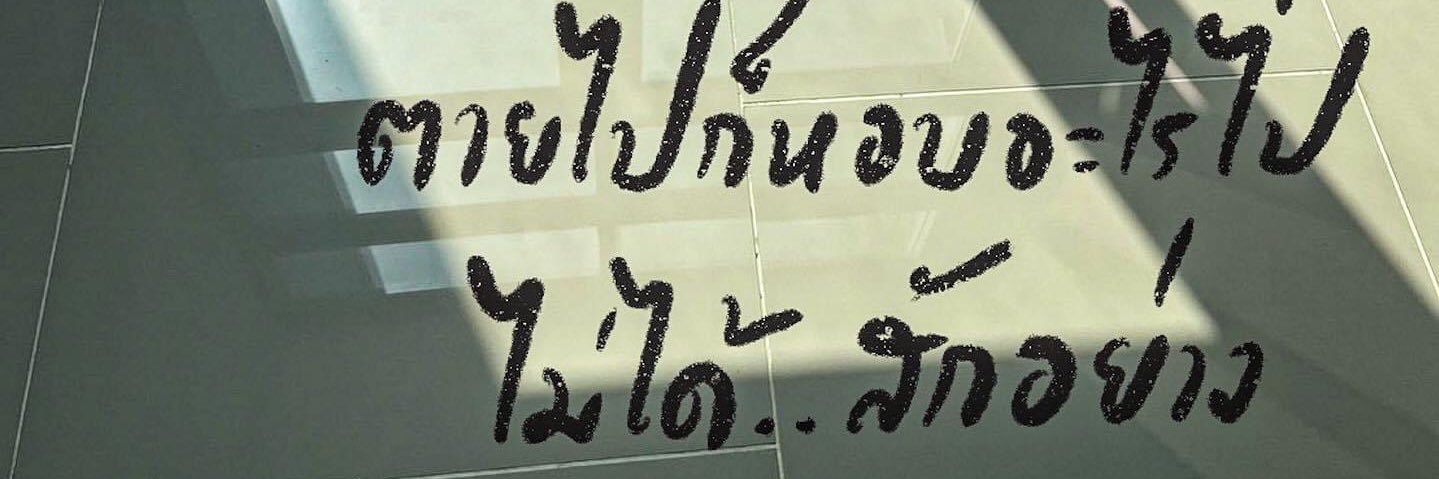 ตายไปก็หอบอะไรไป
ไม่ได้..สักอย่าง